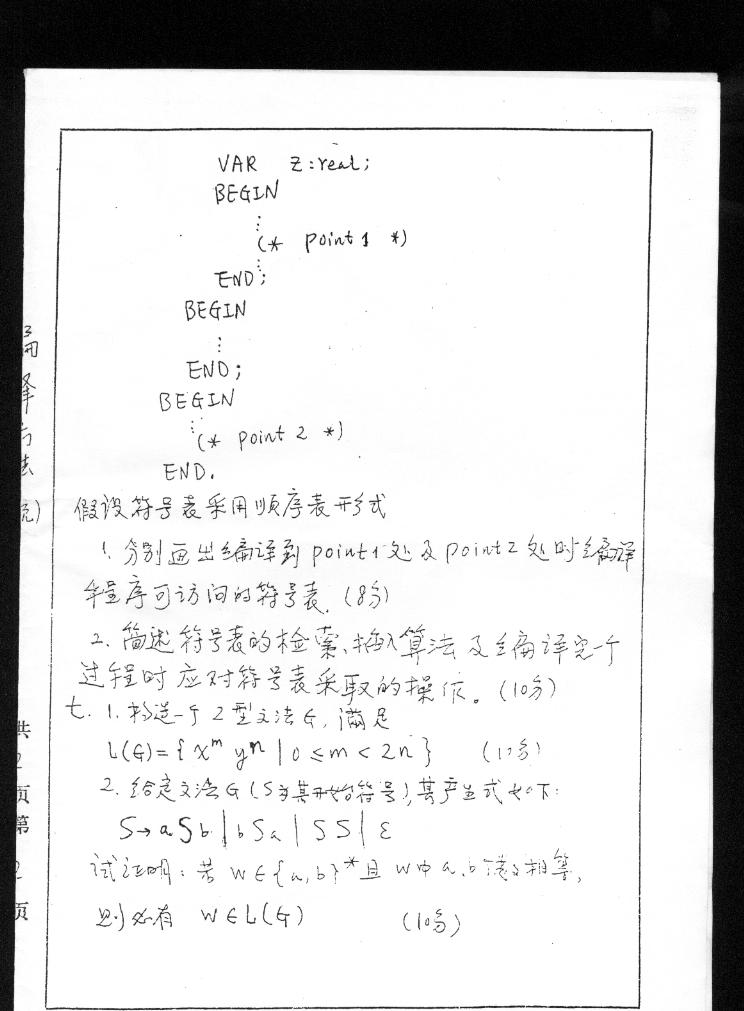 VAR z:real;
BEGIN
⋮
(* point 1 *)
⋮
END;
BEGIN
⋮
END;
BEGIN
⋮
(* point 2 *)
END.
假设符号表采用顺序表形式
1. 分别画出编译到point1处及point2处时编译
程序可访问的符号表. (8分)
2. 简述符号表的检索、插入算法及编译完一个
过程时应对符号表采取的操作。(10分)
七. 1. 构造一个2型文法G, 满足
L(G)={ x^m y^n | 0 ≤ m < 2n }
2. 给定文法G (S为其开始符号), 其产生式如下:
S→aSb | bSa | SS | ε
试证明: 若 W∈{a,b}* 且 W中a,b个数相等,
则必有 W∈L(G) (10分)
编
译
方
法
共
2
页
第
2
页